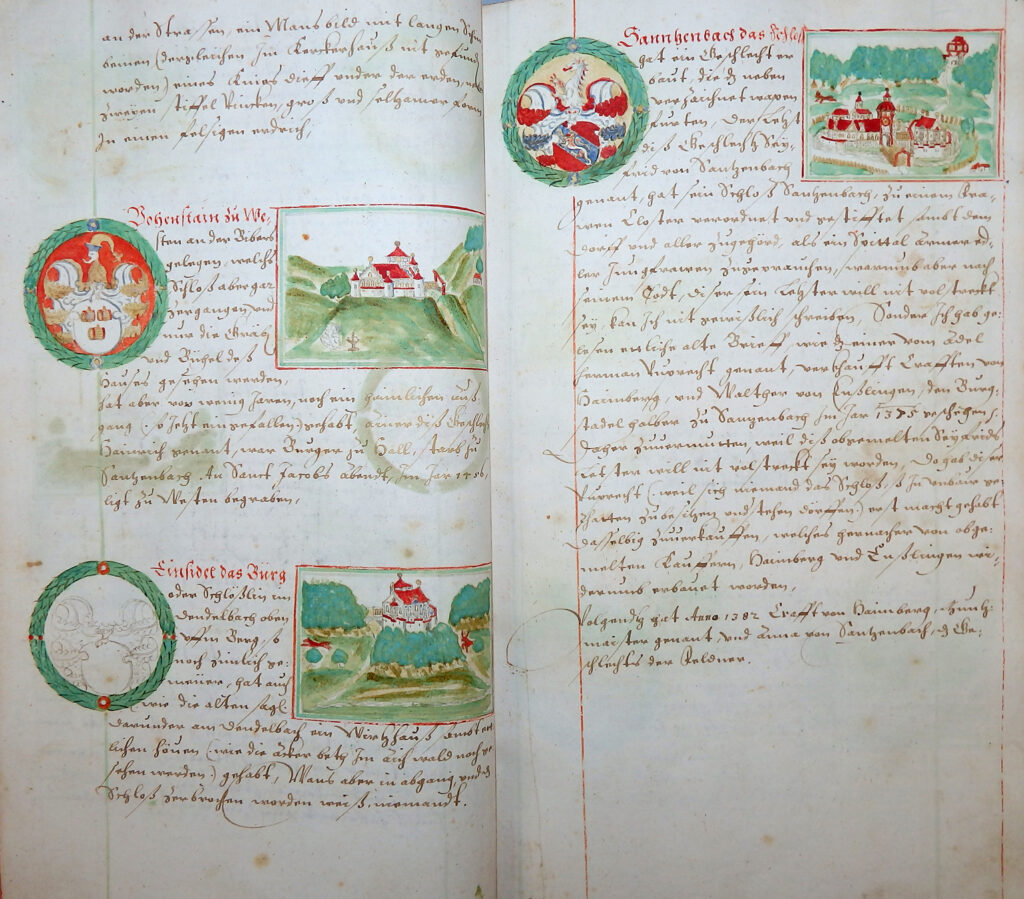 an der Strassen, ein Mans bild mit langen Schin
beinen (dergleichen Im Kerckerhauß nit gefund
worden) eines Knies dieff under der erden, neben
zweyen stiffel Rincken, groß und seltzamer form
In einen felsigen erdrich,
Bohenstain zu We-
sten an der Bibers
gelegen, welchs
Schloß aber gar
zergangen, und
nur die Gräben
und Bühel deß
Hauses gesehen werden,
hat aber vor wenig Jaren, noch ein heimlichen auß
gang (so Jetzt eingefallen) gehabt, diß Geschlechts
Hainrich genant, war Burger zu Hall, starb zu
Santzenbach An Sanct Jacobs abendt, im Jar 1406
ligt zu Westen begraben,
Einsidel das Bürg
oder Schlößlin im
Dendelbach oben
uffm Berg, so
noch zimlich ge-
meüer, hat auch
wie die alten sagt
darunder am Dendelbach ein Wirtzhauß sambt et
lichen höuen (wie die äcker beth Im aich wald noch ge
sehen werden) gehabt, Wans aber in abgang, und das
Schloß zerbrochen worden weiß niemandt.
Santzenbach das Schloß
hat ein Geschlecht er
baut, die das neben
verzaichnet wapen
fürten, Der letzt
diß Geschlechts Sey-
frid von Santzenbach
genant, hat sein Schloß Santzenbach, zu einem Fra-
wen Closter verordnet und gestifftet, sambt dem
dorff und aller zugehörd, als ein Spittal armer ed-
ler Jungfrawen zugebrauchen, warumb aber nach
seinem Todt, diser sein letzter will nit vol streckt
sey, kan Ich nit gewißlich schreiben, Sonder Ich hab ge
lesen etliche alte Brieff, wie das einer vom Adel
Herman Ruprecht genant, verkaufft Crafften von
Haimberg, und Walther von Enßlingen, den Burg-
stadel halber zu Santzenbach Im Jar 1375 geschehen,
Daher zuuermutten, weil diß obgemelten Seyfrids
letster will nit volstreckt sey worden, Da gab diser
Ruprecht (weil sich niemand das Schloß, so In unbaw ge
hatten zubesitzen und stehen dörffen) erst macht gehabt
dasselbig zuuerkauffen, welches hernacher von obge-
melten Kauffern, Haimberg und Enßlingen wi-
derumb erbauet worden,
Volgendts hat Anno 1382 Crafft von Haimberg, Huntz-
maister genant, und Anna von Santzenbach, das Ge-
schlechts der Veldner.